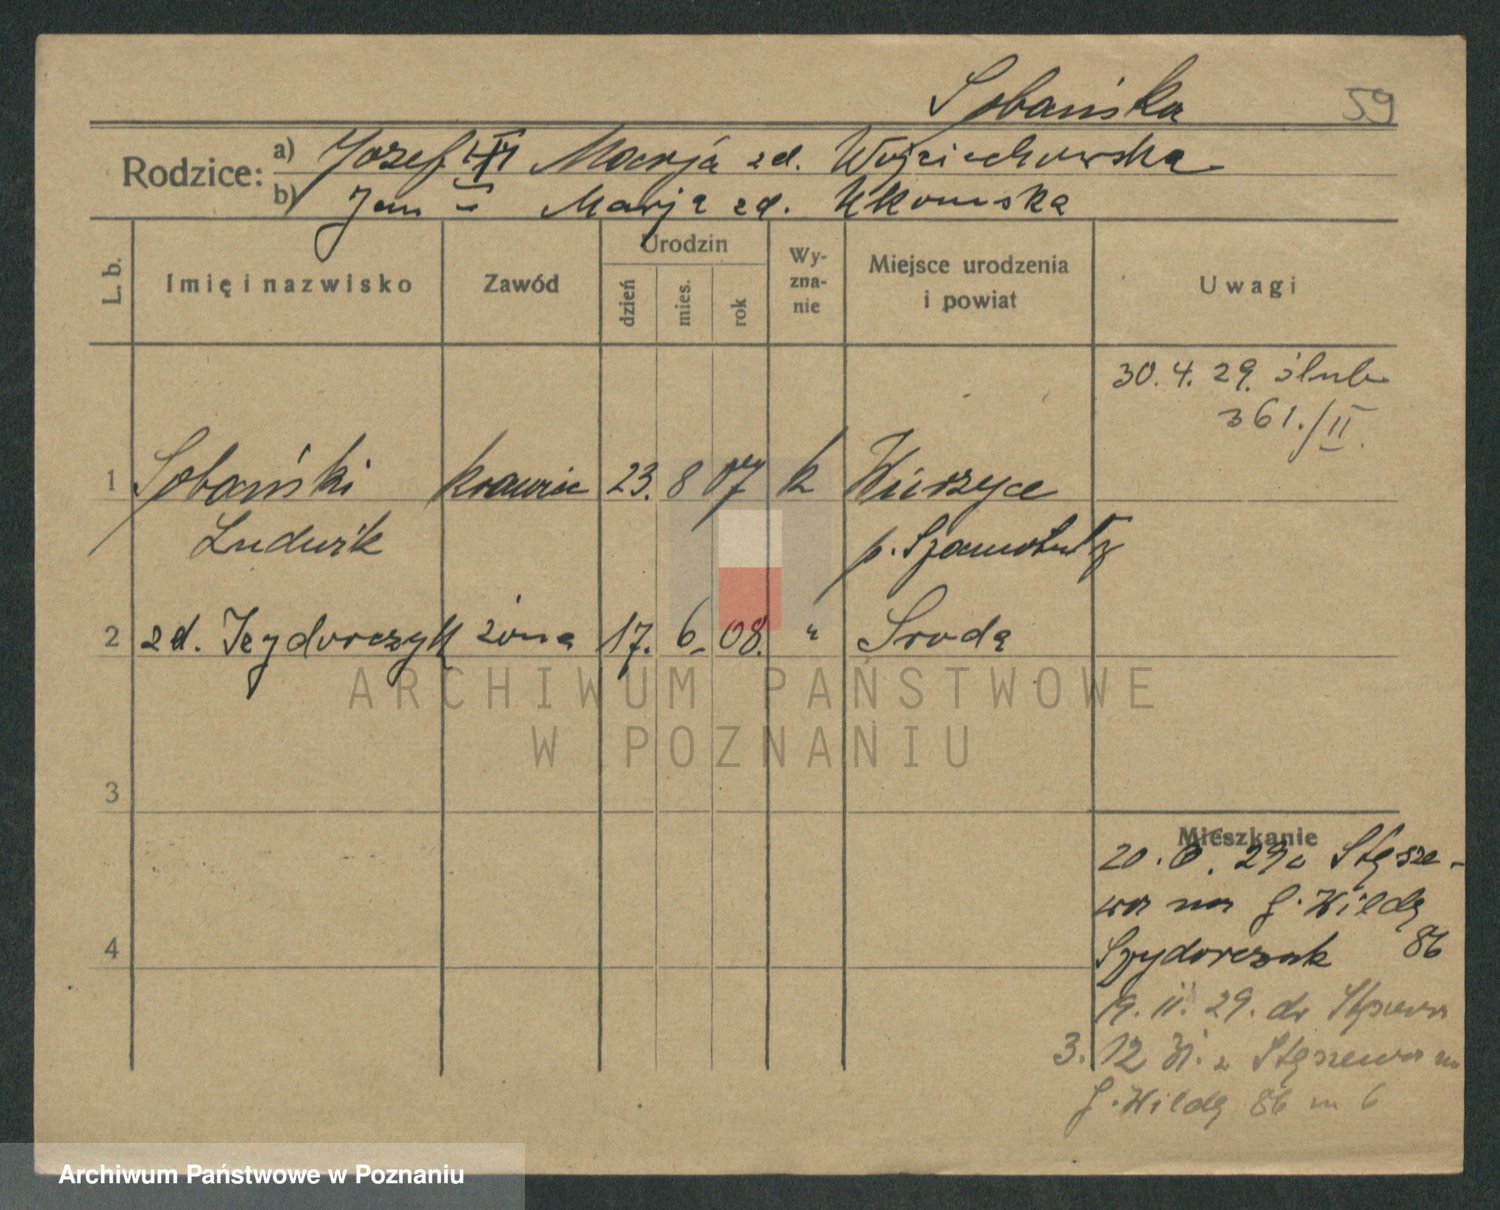 Sobańska 59
Rodzice:
a) Józef Marja zd. Wojciechowska
b) Jan Marja zd.
L. b.
Imię i nazwisko
Zawód
Urodzin
dzień
mies.
rok
Wy-
zna-
nie
Miejsce urodzenia
i powiat
Uwagi
30. 4. 29. ślub
361./II.
1 Sobański krawiec 23. 8 07 k Wierzyce
Ludwik p. Szamotuły
2 zd. żona 17. 6. 08. " Środa
3
4
Mieszkanie
20. 6. 29 z Stęsze-
wa na G. Wildę
Szydorczak 86
19. 11. 29. do Stęszewa
3. 12 31. z Stęszewa na
G. Wildę 86 m 6
ARCHIWUM PAŃSTWOWE
W POZNANIU
Archiwum Państwowe w Poznaniu